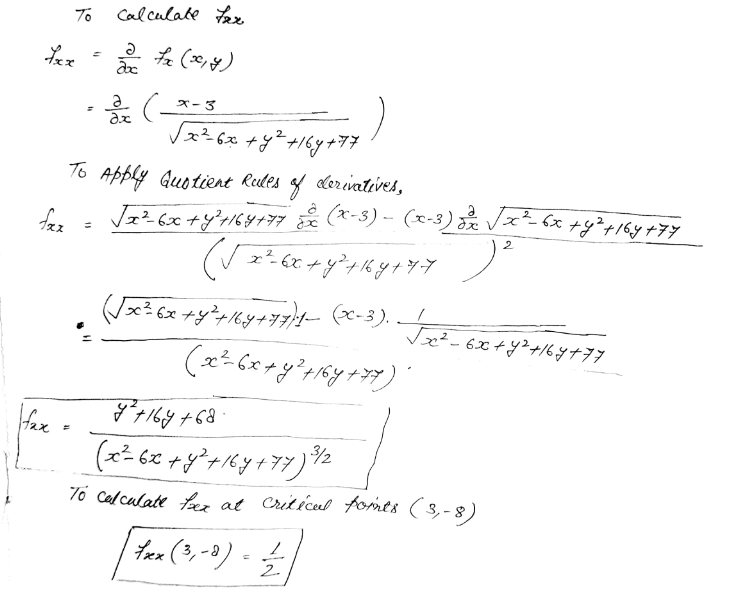 To Calculate fxx
fxx = ∂/∂x fx (x,y)
= ∂/∂x ( x-3 / √x²-6x+y²+16y+77 )
To Apply Quotient Rules of derivatives,
fxx = √x²-6x+y²+16y+77 ∂/∂x (x-3) - (x-3) ∂/∂x √x²-6x+y²+16y+77 / (√x²-6x+y²+16y+77)²
= (√x²-6x+y²+16y+77).1 - (x-3). 1/√x²-6x+y²+16y+77 / (x²-6x+y²+16y+77)
fxx = y²+16y+68 / (x²-6x+y²+16y+77)^3/2
To calculate fxx at critical points (3,-8)
fxx (3,-8) = 1/2